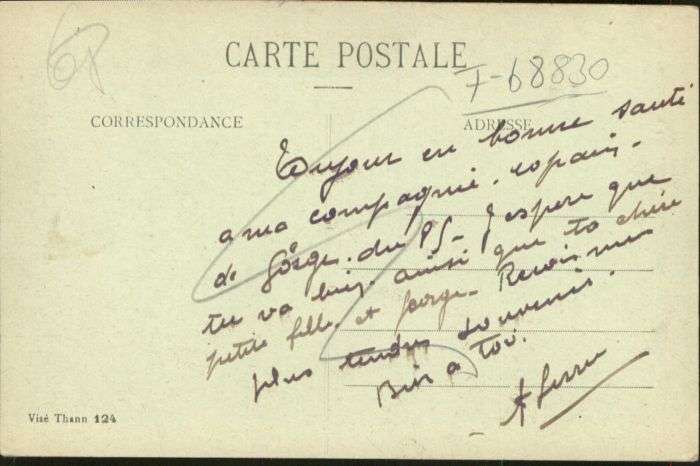 CARTE POSTALE
F-68830
CORRESPONDANCE
ADRESSE
Toujour en bonne santé
a ma compagnie. copain.
de du PS- J'espere que
tu va bien ainsi que ta chére
petite fille et Recois mes
plus tendre souvenir.
a Toi.
Visé Thann 124